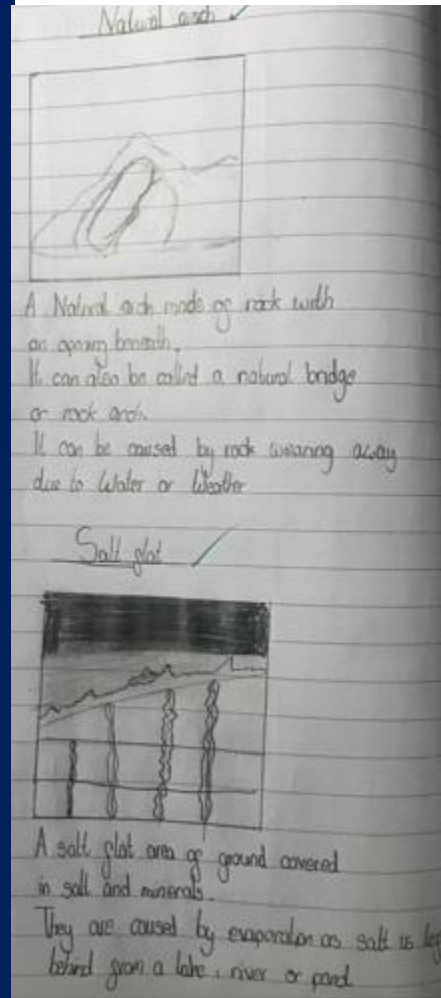 Natural arch
A Natural arch made of rock with
an opening beneath.
It can also be called a natural bridge
or rock arch
It can be caused by rock wearing away
due to Water or Weather
Salt flat
A salt flat area of ground covered
in salt and minerals.
They are caused by evaporation as salt is
behind from a lake, river or pond